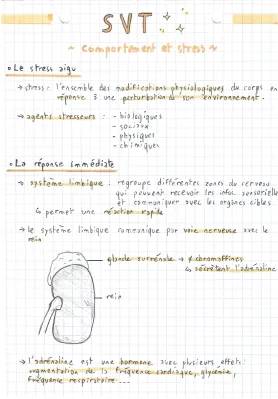 SVT
~ Comportement et stress ~
• Le stress aigu
→ stress : l'ensemble des modifications physiologiques du corps en
réponse à une perturbation de son environnement.
→ agents stresseurs : - biologiques
- sociaux
- physiques
- chimiques
• La réponse immédiate
→ système limbique : regroupe différentes zones du cerveau
qui peuvent recevoir les infos sensorielles
et communiquer avec les organes cibles
↳ permet une réaction rapide
→ le système limbique communique par voie nerveuse avec le
rein
glande surrénale → chromaffines
↳ sécrètent l'adrénaline
rein
→ l'adrénaline est une hormone avec plusieurs effets :
augmentation de la fréquence cardiaque, glycémie,
fréquence respiratoire ...